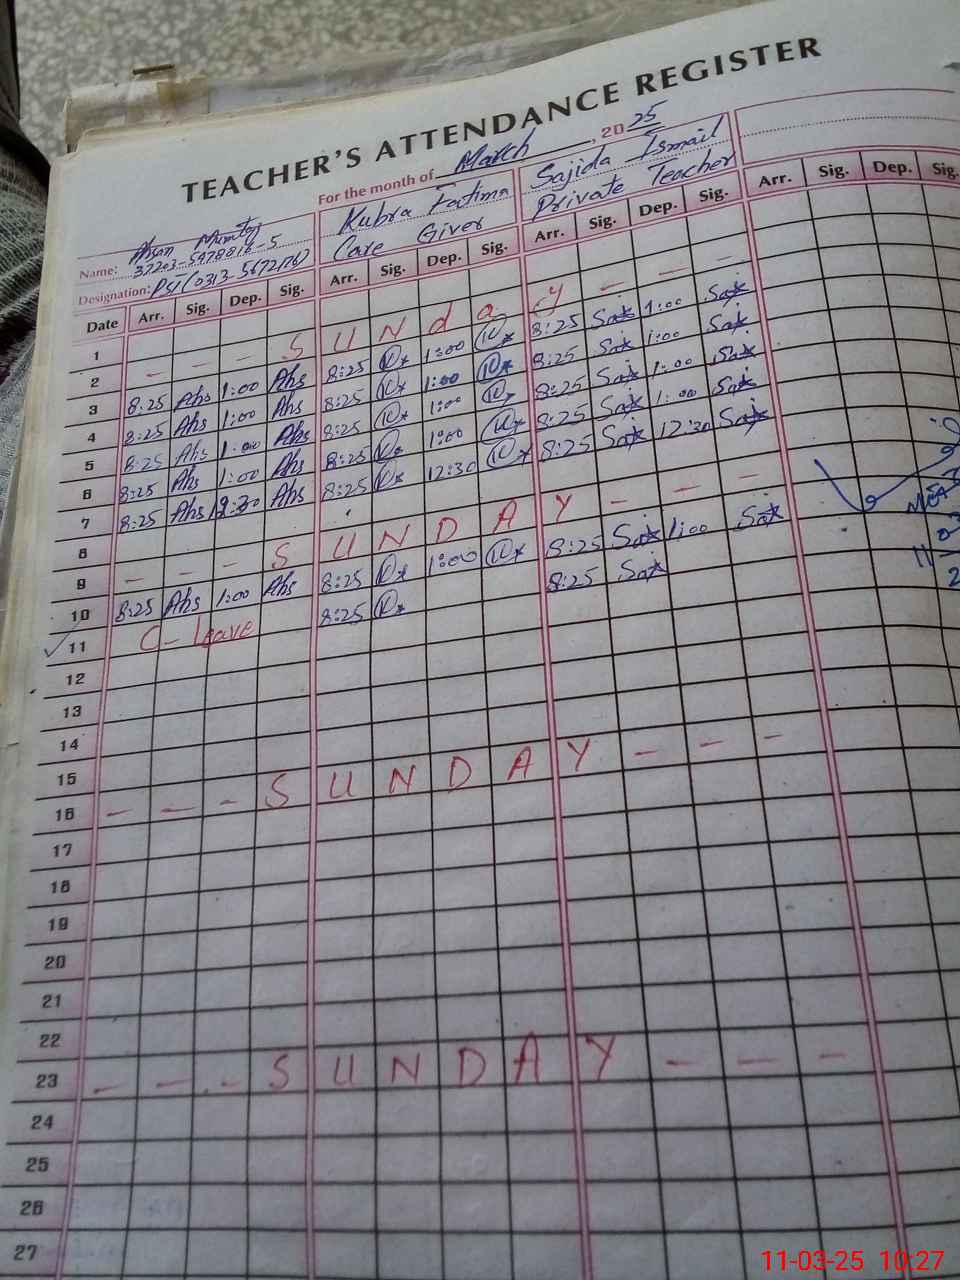 TEACHER'S ATTENDANCE REGISTER
For the month of March, 2025
Name: Ahsan Mumtaz Kubra Fatima Sajida Ismail
37203-5478816-5
Designation: PST (0313-5672176) Care Giver Private Teacher
Date Arr. Sig. Dep. Sig. Arr. Sig. Dep. Sig. Arr. Sig. Dep. Sig. Arr. Sig. Dep. Sig.
1
2 - - - S U N d a y - - -
3 8:25 Ahs 1:00 Ahs 8:25 1:00 8:25 Sat 1:00 Sat
4 8:25 Ahs 1:00 Ahs 8:25 1:00 8:25 Sat 1:00 Sat
5 8:25 Ahs 1:00 Ahs 8:25 1:00 8:25 Sat 1:00 Sat
6 8:25 Ahs 1:00 Ahs 8:25 1:00 8:25 Sat 1:00 Sat
7 8:25 Ahs 12:30 Ahs 8:25 12:30 8:25 Sat 12:30 Sat
8
9 - - - S U N D A Y - - -
10 8:25 Ahs 1:00 Ahs 8:25 1:00 8:25 Sat 1:00 Sat
11 C - leave 8:25 8:25 Sat
12
13
14
15
16 - - - S U N D A Y - - -
17
18
19
20
21
22
23 - - - S U N D A Y - - -
24
25
26
27
MEA
11
11-03-25 10:27